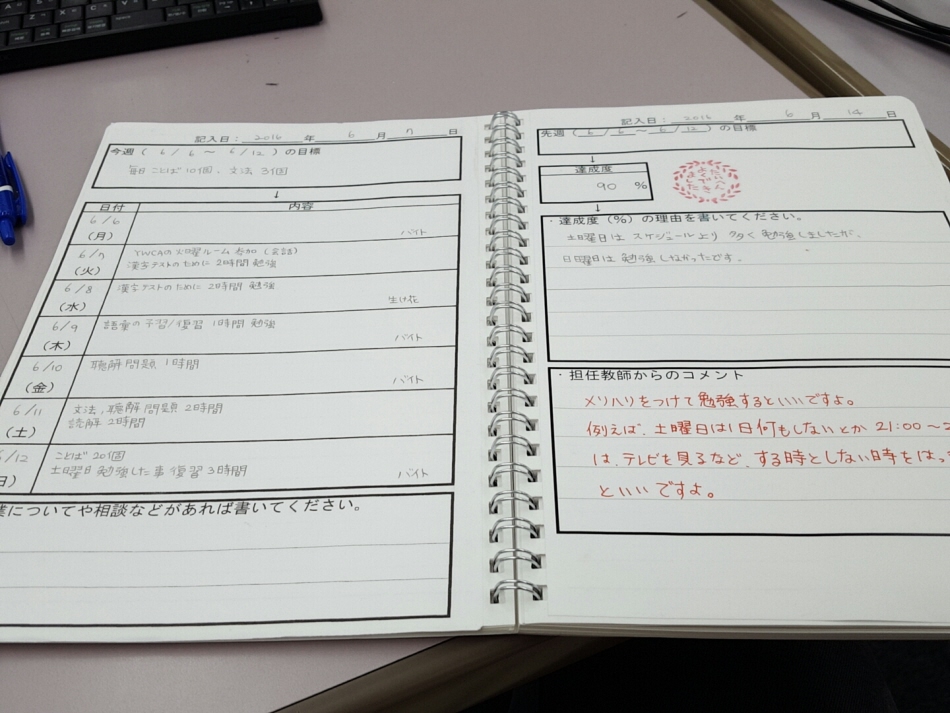 記入日： 2016 年 6 月 7 日
今週（ 6 / 6 ～ 6 / 12 ）の目標
毎日 ことば 10個、文法 3個
↓
日付 内容
6/6
（月） バイト
6/7 YWCAの火曜ルーム 参加 (会話)
（火） 漢字テストのために 2時間 勉強
6/8 漢字テストのために 2時間 勉強
（水） 生け花
6/9 語彙の予習/復習 1時間 勉強
（木） バイト
6/10 聴解問題 1時間
（金） バイト
6/11 文法, 聴解問題 2時間
（土） 読解 2時間
6/12 ことば 20個
日） 土曜日 勉強した事 復習 3時間 バイト
業についてや相談などがあれば書いてください。
記入日： 2016 年 6 月 14 日
先週（ 6 / 6 ～ 6 / 12 ）の目標
↓
達成度
90 %
たいへん
よくできま
した
↓
・達成度（％）の理由を書いてください。
土曜日は スケジュールより 多く 勉強しましたが、
日曜日は 勉強 しなかったです。
・担任教師からのコメント
メリハリをつけて勉強するといいですよ。
例えば、土曜日は1日何もしないとか 21:00～2
は、テレビを見るなど、する時としない時をはっ
といいですよ。